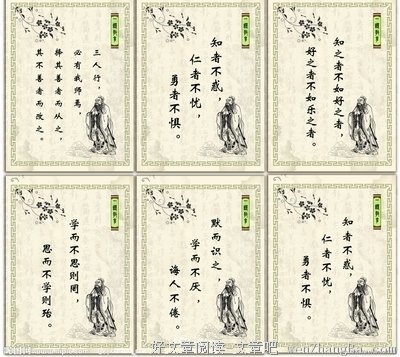 三人行，
必有我师焉，
择其善者而从之，
其不善者而改之。
知者不惑，
仁者不忧，
勇者不惧。
知之者不如好之者，
好之者不如乐之者。
学而不思则罔，
思而不学则殆。
默而识之，
学而不厌，
诲人不倦。
知者不惑，
仁者不忧，
勇者不惧。
好文章阅读_文章吧
wenzhangba.com